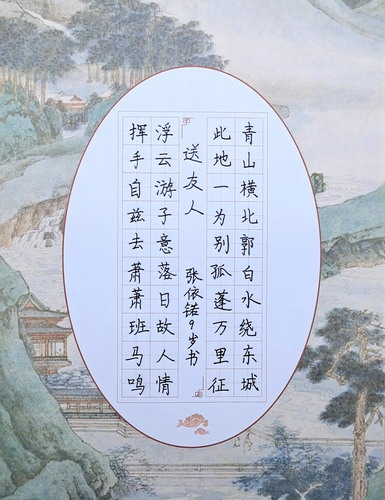 青山横北郭白水绕东城
此地一为别孤蓬万里征
送友人 张依锘9岁书
浮云游子意落日故人情
挥手自兹去萧萧班马鸣